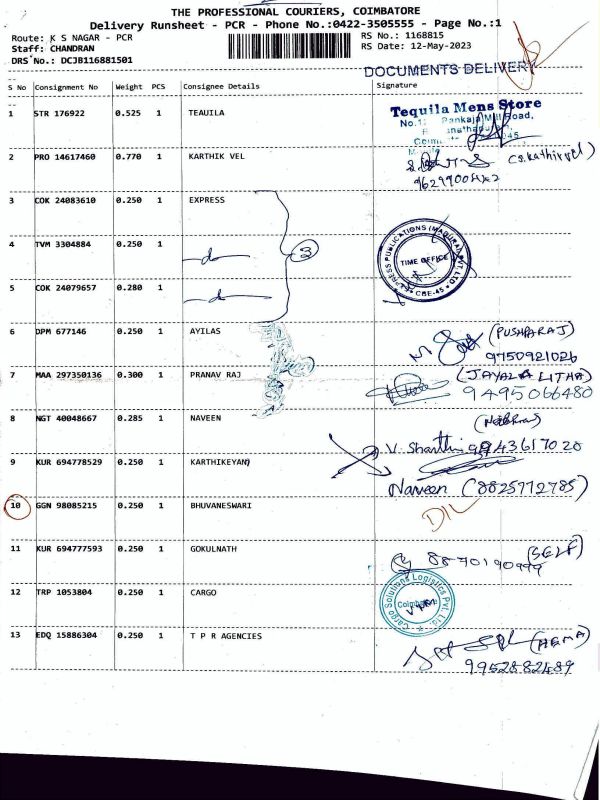 THE PROFESSIONAL COURIERS, COIMBATORE
Delivery Runsheet - PCR - Phone No.:0422-3505555 - Page No.:1
Route: K S NAGAR - PCR
RS No.: 1168815
Staff: CHANDRAN
RS Date: 12-May-2023
DRS No.: DCJB116881501
DOCUMENTS DELIVERY
S No Consignment No Weight PCS Consignee Details Signature
1 STR 176922 0.525 1 TEAUILA
Tequila Mens Store
No.1 Pankaja Mill Road,
2 PRO 14617460 0.770 1 KARTHIK VEL
(S.Kathirvel)
3 COK 24083610 0.250 1 EXPRESS
4 TVM 3304884 0.250 1 -do- 3
EXPRESS PUBLICATIONS (MADURAI) PVT. LTD. CBE-45
TIME OFFICE
5 COK 24079657 0.280 1 -do-
6 DPM 677146 0.250 1 AYILAS
(PUSHPARAJ)
9750921026
7 MAA 297350136 0.300 1 PRANAV RAJ
(JAYALALITHA)
9495066480
8 NGT 40048667 0.285 1 NAVEEN
9 KUR 694778529 0.250 1 KARTHIKEYAN
Naveen (8825772785)
10 GGN 98085215 0.250 1 BHUVANESWARI
D/L
11 KUR 694777593 0.250 1 GOKULNATH
(SELF)
8870190999
12 TRP 1053804 0.250 1 CARGO
Cargo Solutions Logistics Pvt. Ltd.
Coimbatore
13 EDQ 15886304 0.250 1 T P R AGENCIES
(HEMA)
9952882489